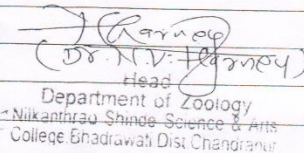 Harney
(Dr. N.V. Harney)
Head
Department of Zoology
Nilkanthrao Shinde Science & Arts
College, Bhadrawati Dist Chandrapur